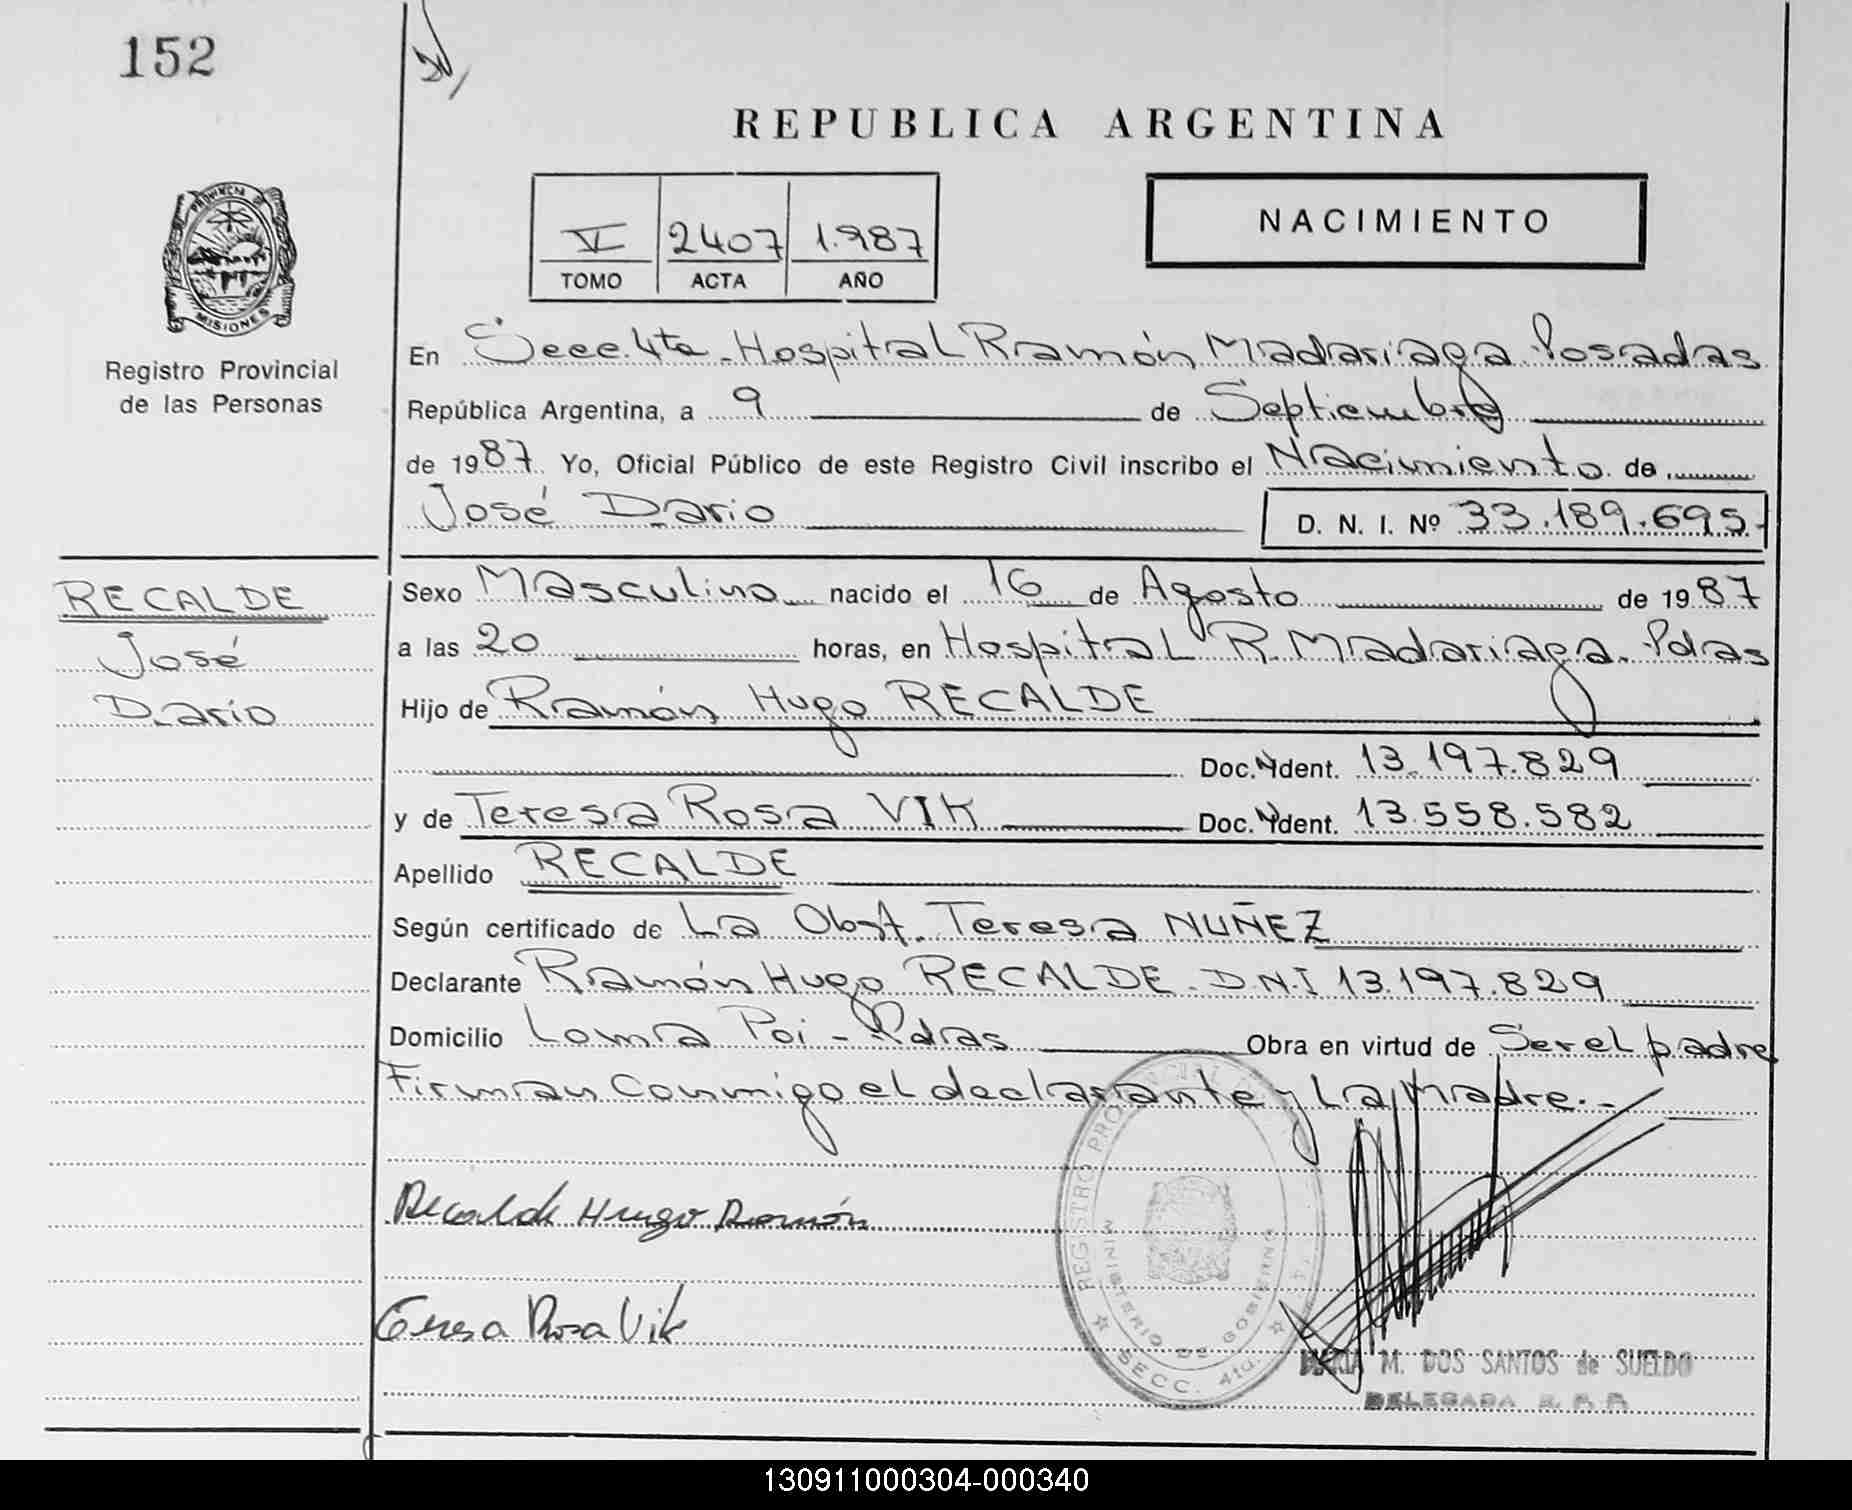 152
REPUBLICA ARGENTINA
VI 2407 1.987
TOMO ACTA AÑO
NACIMIENTO
PROVINCIA DE
MISIONES
Registro Provincial
de las Personas
En Secc. 4ta - Hospital Ramón Madariaga Posadas
República Argentina, a 9 de Septiembre
de 1987 Yo, Oficial Público de este Registro Civil inscribo el Nacimiento de
José Dario D. N. I. Nº 33.189.695.-
RECALDE
José
Dario
Sexo Masculino nacido el 16 de Agosto de 1987
a las 20 horas, en Hospital R. Madariaga. Pdas
Hijo de Ramón Hugo RECALDE
Doc. Ident. 13.197.829
y de Teresa Rosa VIK Doc. Ident. 13.558.582
Apellido RECALDE
Según certificado de La Obst. Teresa NUÑEZ
Declarante Ramón Hugo RECALDE. D.N.I 13.197.829
Domicilio Loma Poi - Pdas Obra en virtud de Ser el padre
Firman Conmigo el declarante y La Madre.-
Recalde Hugo Ramón
Teresa Rosa Vik
REGISTRO PROVINCIAL
MINISTERIO DE GOBIERNO
SECC. 4ta.
MARIA M. DOS SANTOS de SUELDO
DELEGADA R. P. P.
130911000304-000340